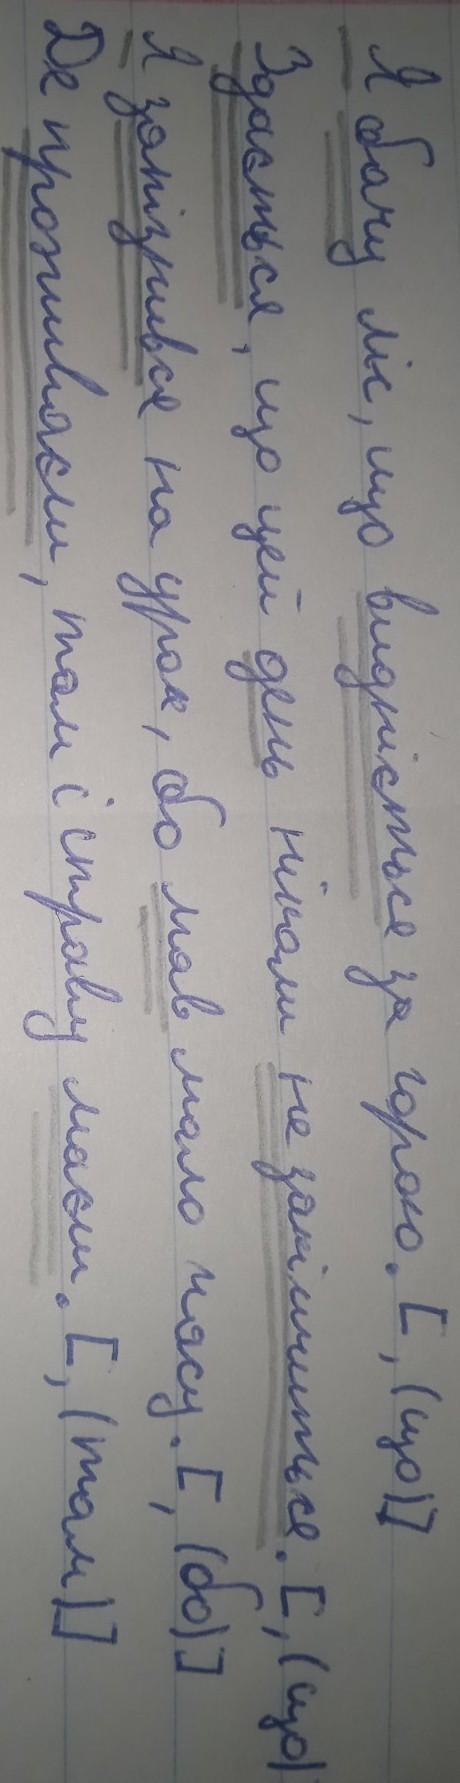 Я бачу ліс, що виднієтьсе за горою. [, (що)]
Здаєтьсе, що цей день ніколи не закінчитьсе. [, (що)
Я запізнивсе на урок, бо мав мало часу. [, (бо)]
Де проживаєш, там і справу маєш. [, (там)]